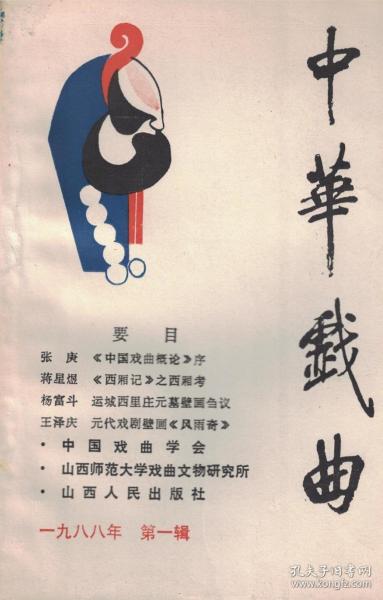 中華戲曲
要目
张庚 《中国戏曲概论》序
蒋星煜 《西厢记》之西厢考
杨富斗 运城西里庄元墓壁画刍议
王泽庆 元代戏剧壁画《风雨奇》
·中国戏曲学会
·山西师范大学戏曲文物研究所
·山西人民出版社
一九八八年 第一辑
孔夫子旧书网